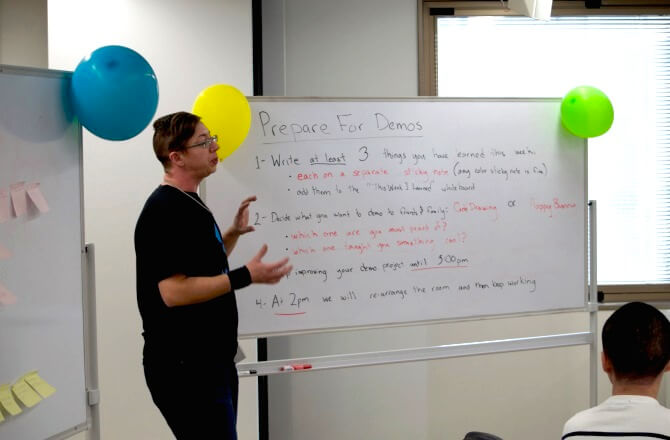 Prepare For Demos
1- Write at least 3 things you have learned this week:
• each on a separate sticky note (any color sticky note is fine)
• add them to the "This Week I Learned" whiteboard
2- Decide what you want to demo to friends & family: Code Drawing or Floppy Banana
• which one are you most proud of?
• which one taught you something cool?
improving your demo project until 3:00pm
4- At 2pm we will re-arrange the room and then keep working